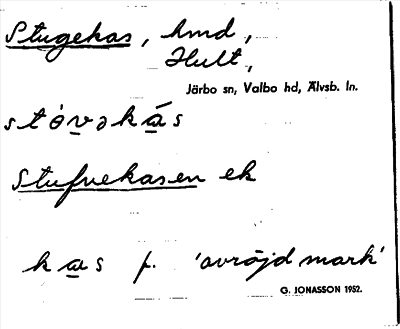 Stugekas, hmd,
Hult,
Järbo sn, Valbo hd, Älvsb. ln.
stòvəkás
Stufvekasen ek
kas f. 'avröjd mark'
G. JONASSON 1952.